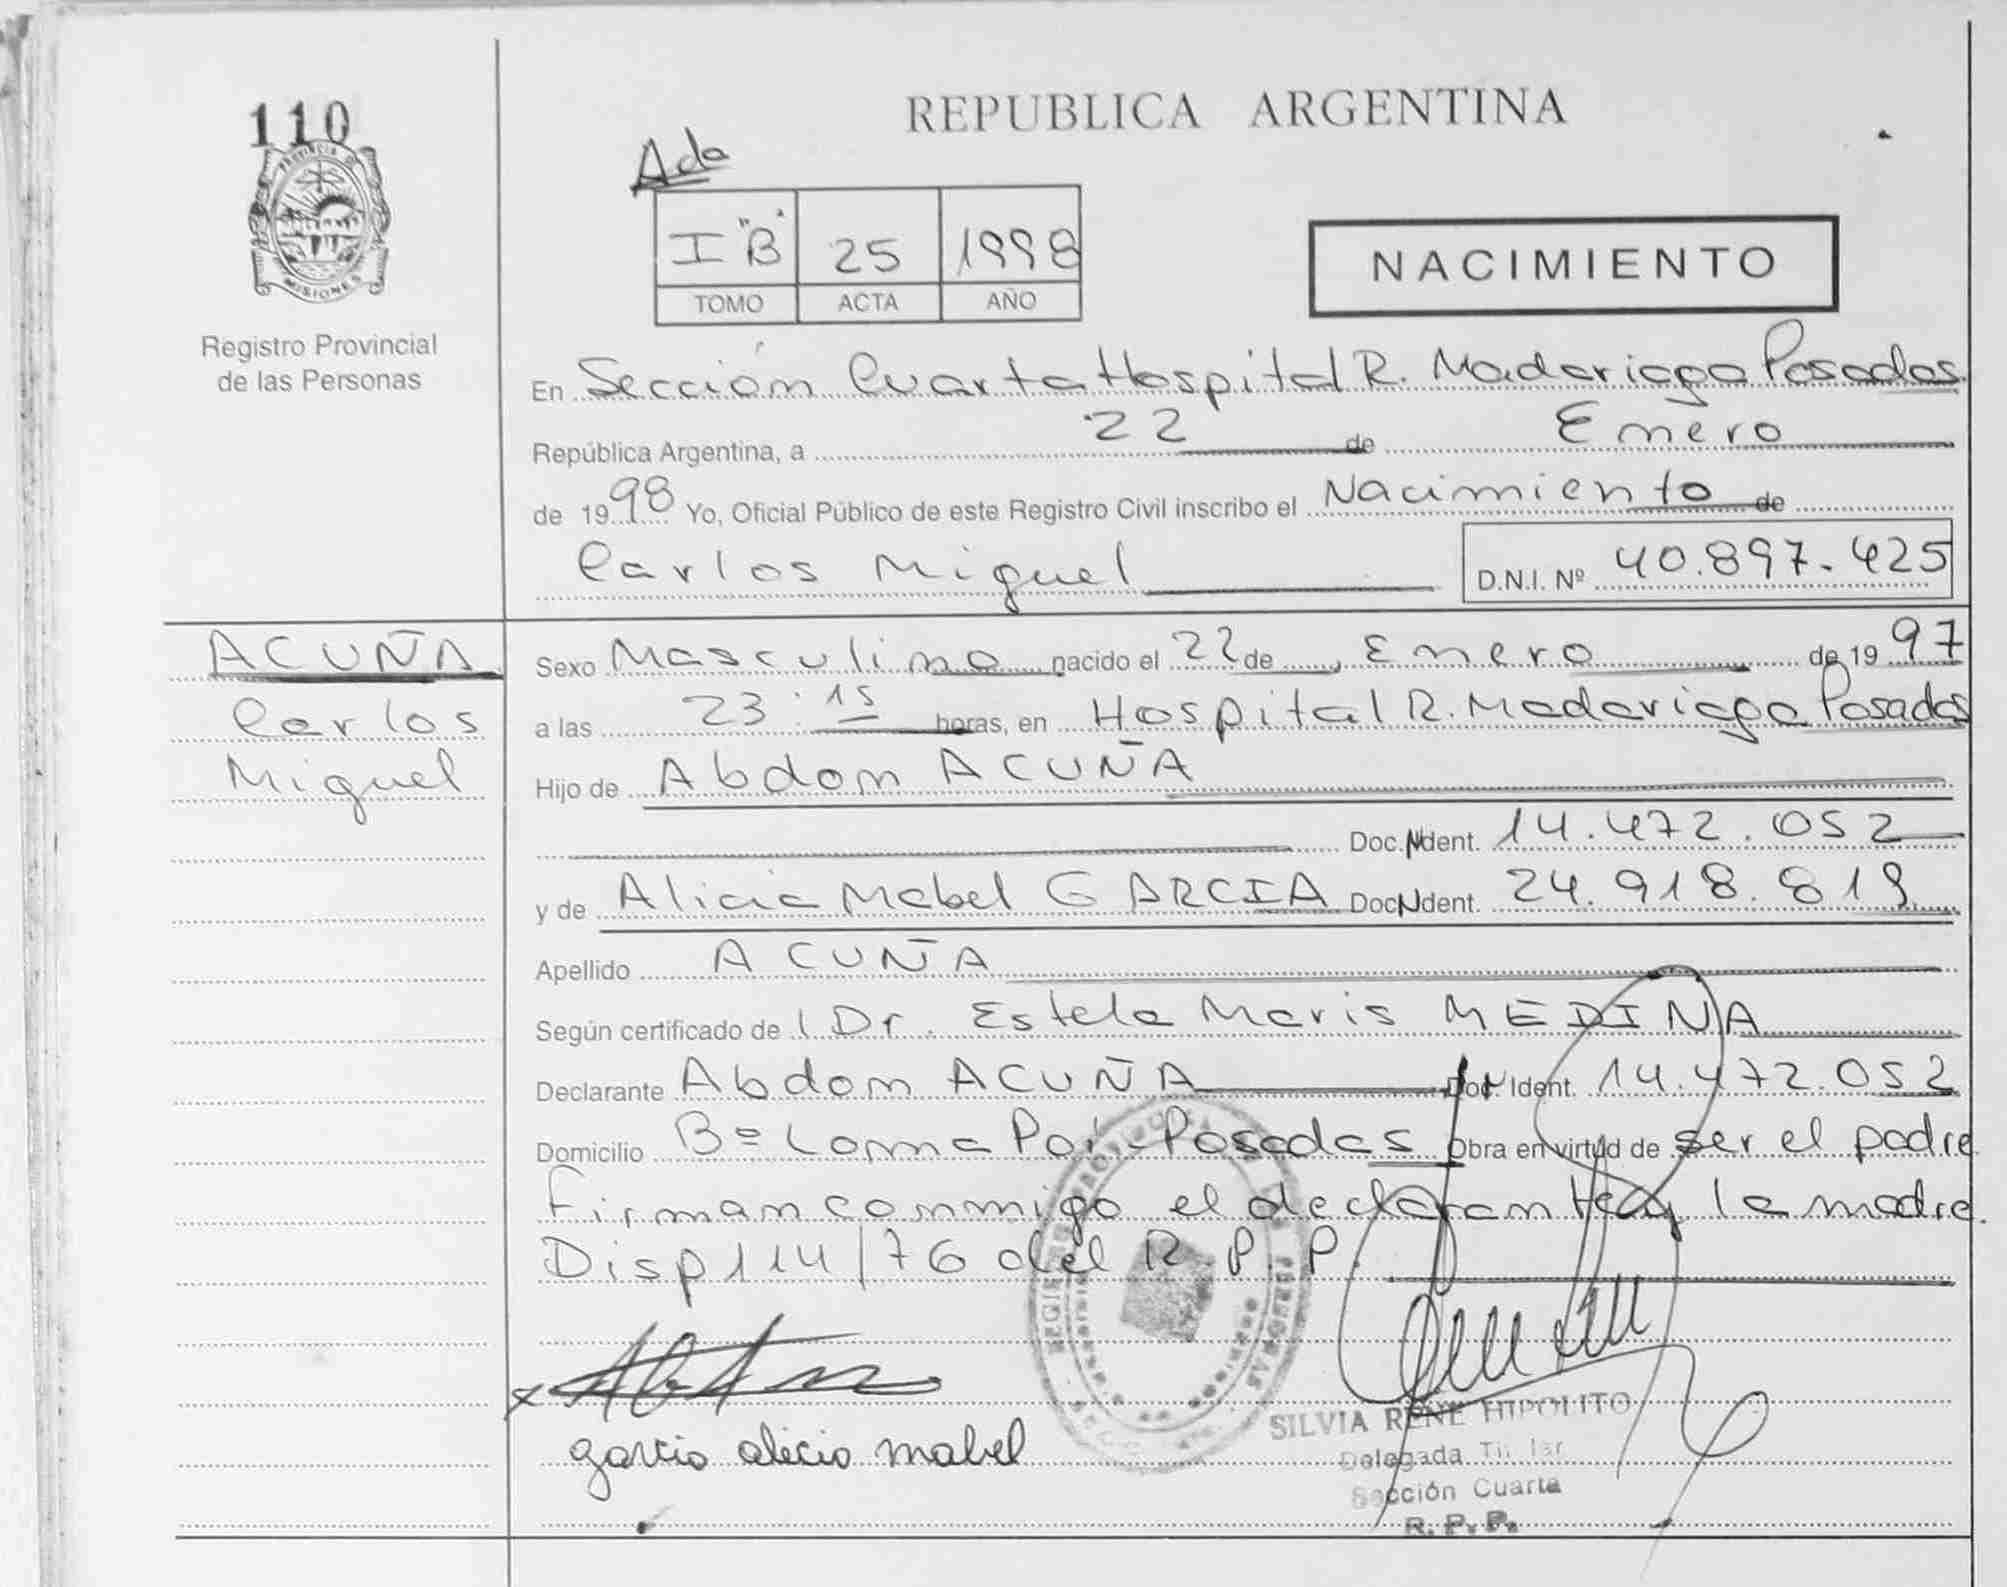 110
PROVINCIA DE
MISIONES
Registro Provincial
de las Personas
REPUBLICA ARGENTINA
Ada
I "B" 25 1998
TOMO ACTA AÑO
NACIMIENTO
En Sección Cuarta Hospital R. Madariaga Posadas
República Argentina, a 22 de Enero
de 1998 Yo, Oficial Público de este Registro Civil inscribo el Nacimiento de
Carlos Miguel D.N.I. Nº 40.897.425
ACUÑA
Carlos
Miguel
Sexo Masculino nacido el 22 de Enero de 1997
a las 23:15 horas, en Hospital R. Madariaga Posadas
Hijo de Abdom ACUÑA
Doc. Ident. 14.472.052
y de Alicia Mabel GARCIA Doc. Ident. 24.918.819
Apellido ACUÑA
Según certificado de l Dr. Estela Maris MEDINA
Declarante Abdom ACUÑA Doc. Ident. 14.472.052
Domicilio Bº Loma Poi-Posadas Obra en virtud de ser el padre
Firman conmigo el declarante y la madre.
Disp 114/76 del R.P.P.
garcia alicia mabel
SILVIA RENE HIPOLITO
Delegada Titular
Sección Cuarta
R. P. P.